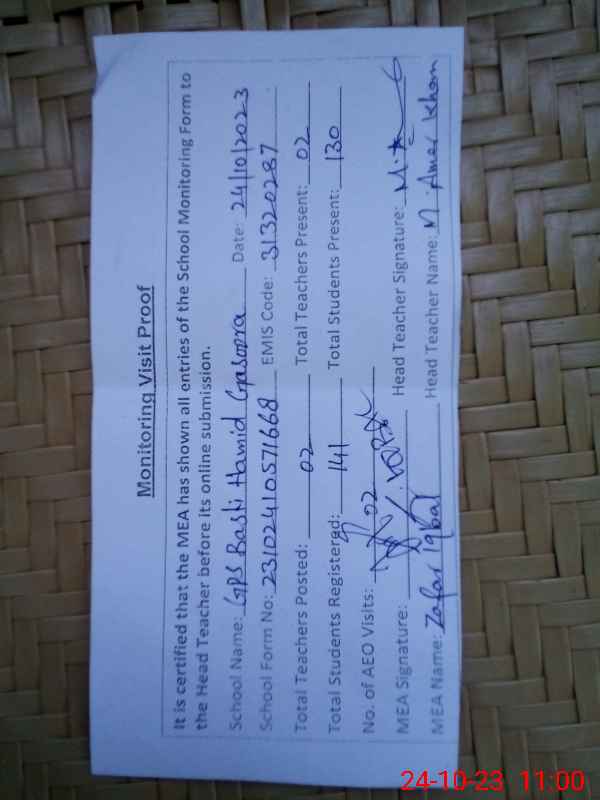 Monitoring Visit Proof
It is certified that the MEA has shown all entries of the School Monitoring Form to
the Head Teacher before its online submission.
School Name: GPS Basti Hamid Gasoora Date: 24/10/2023
School Form No: 2310241057 1668 EMIS Code: 31320287
Total Teachers Posted: 02 Total Teachers Present: 02
Total Students Registered: 141 Total Students Present: 130
No. of AEO Visits: 02
MEA Signature: Head Teacher Signature:
MEA Name: Zafar Iqbal Head Teacher Name: M. Amer Khan
24-10-23 11:00